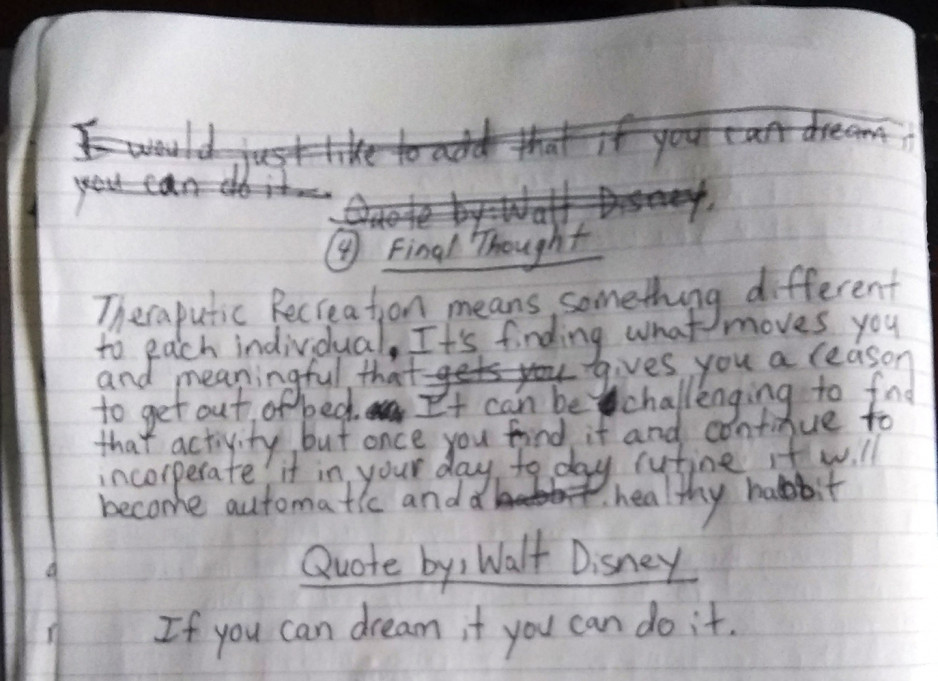 I would just like to add that if you can dream it
you can do it.
Quote by: Walt Disney.
④ Final Thought
Theraputic Recreation means something different
to each individual. It's finding what moves you
and meaningful that gets you gives you a reason
to get out of bed. It can be challenging to find
that activity, but once you find it and continue to
incorperate it in your day to day rutine it will
become automatic and a habbit healthy habbit
Quote by, Walt Disney
If you can dream it you can do it.